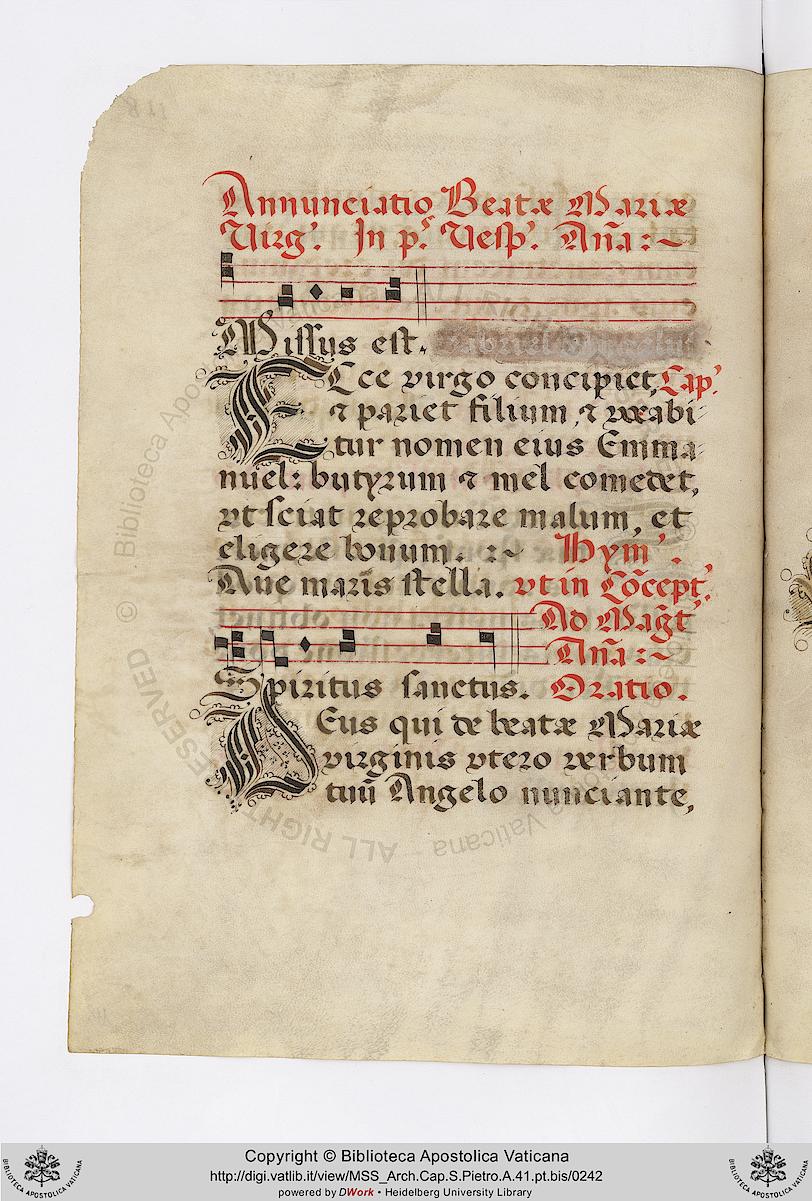 Annunciatio Beatæ Mariæ
Virg'. In p.ˢ Vesp'. An̄a:~
Missus est.
ECce virgo concipiet, Cap.'
⁊ pariet filium, ⁊ vocabi-
tur nomen eius Emma-
nuel: butyrum ⁊ mel comedet,
vt sciat reprobare malum, et
eligere bonum. :~ Hym'.
Aue maris stella. vt in Cōcept.'
Ad Maḡt'
An̄a:~
Spiritus sanctus. Oratio.
DEus qui de beatæ Mariæ
virginis vtero verbum
tuū Angelo nunciante,
© Biblioteca Apostolica Vaticana
ALL RIGHTS RESERVED
BIBLIOTECA APOSTOLICA VATICANA
Copyright © Biblioteca Apostolica Vaticana
http://digi.vatlib.it/view/MSS_Arch.Cap.S.Pietro.A.41.pt.bis/0242
powered by DWork • Heidelberg University Library
BIBLIOTECA APOSTOLICA VATICANA